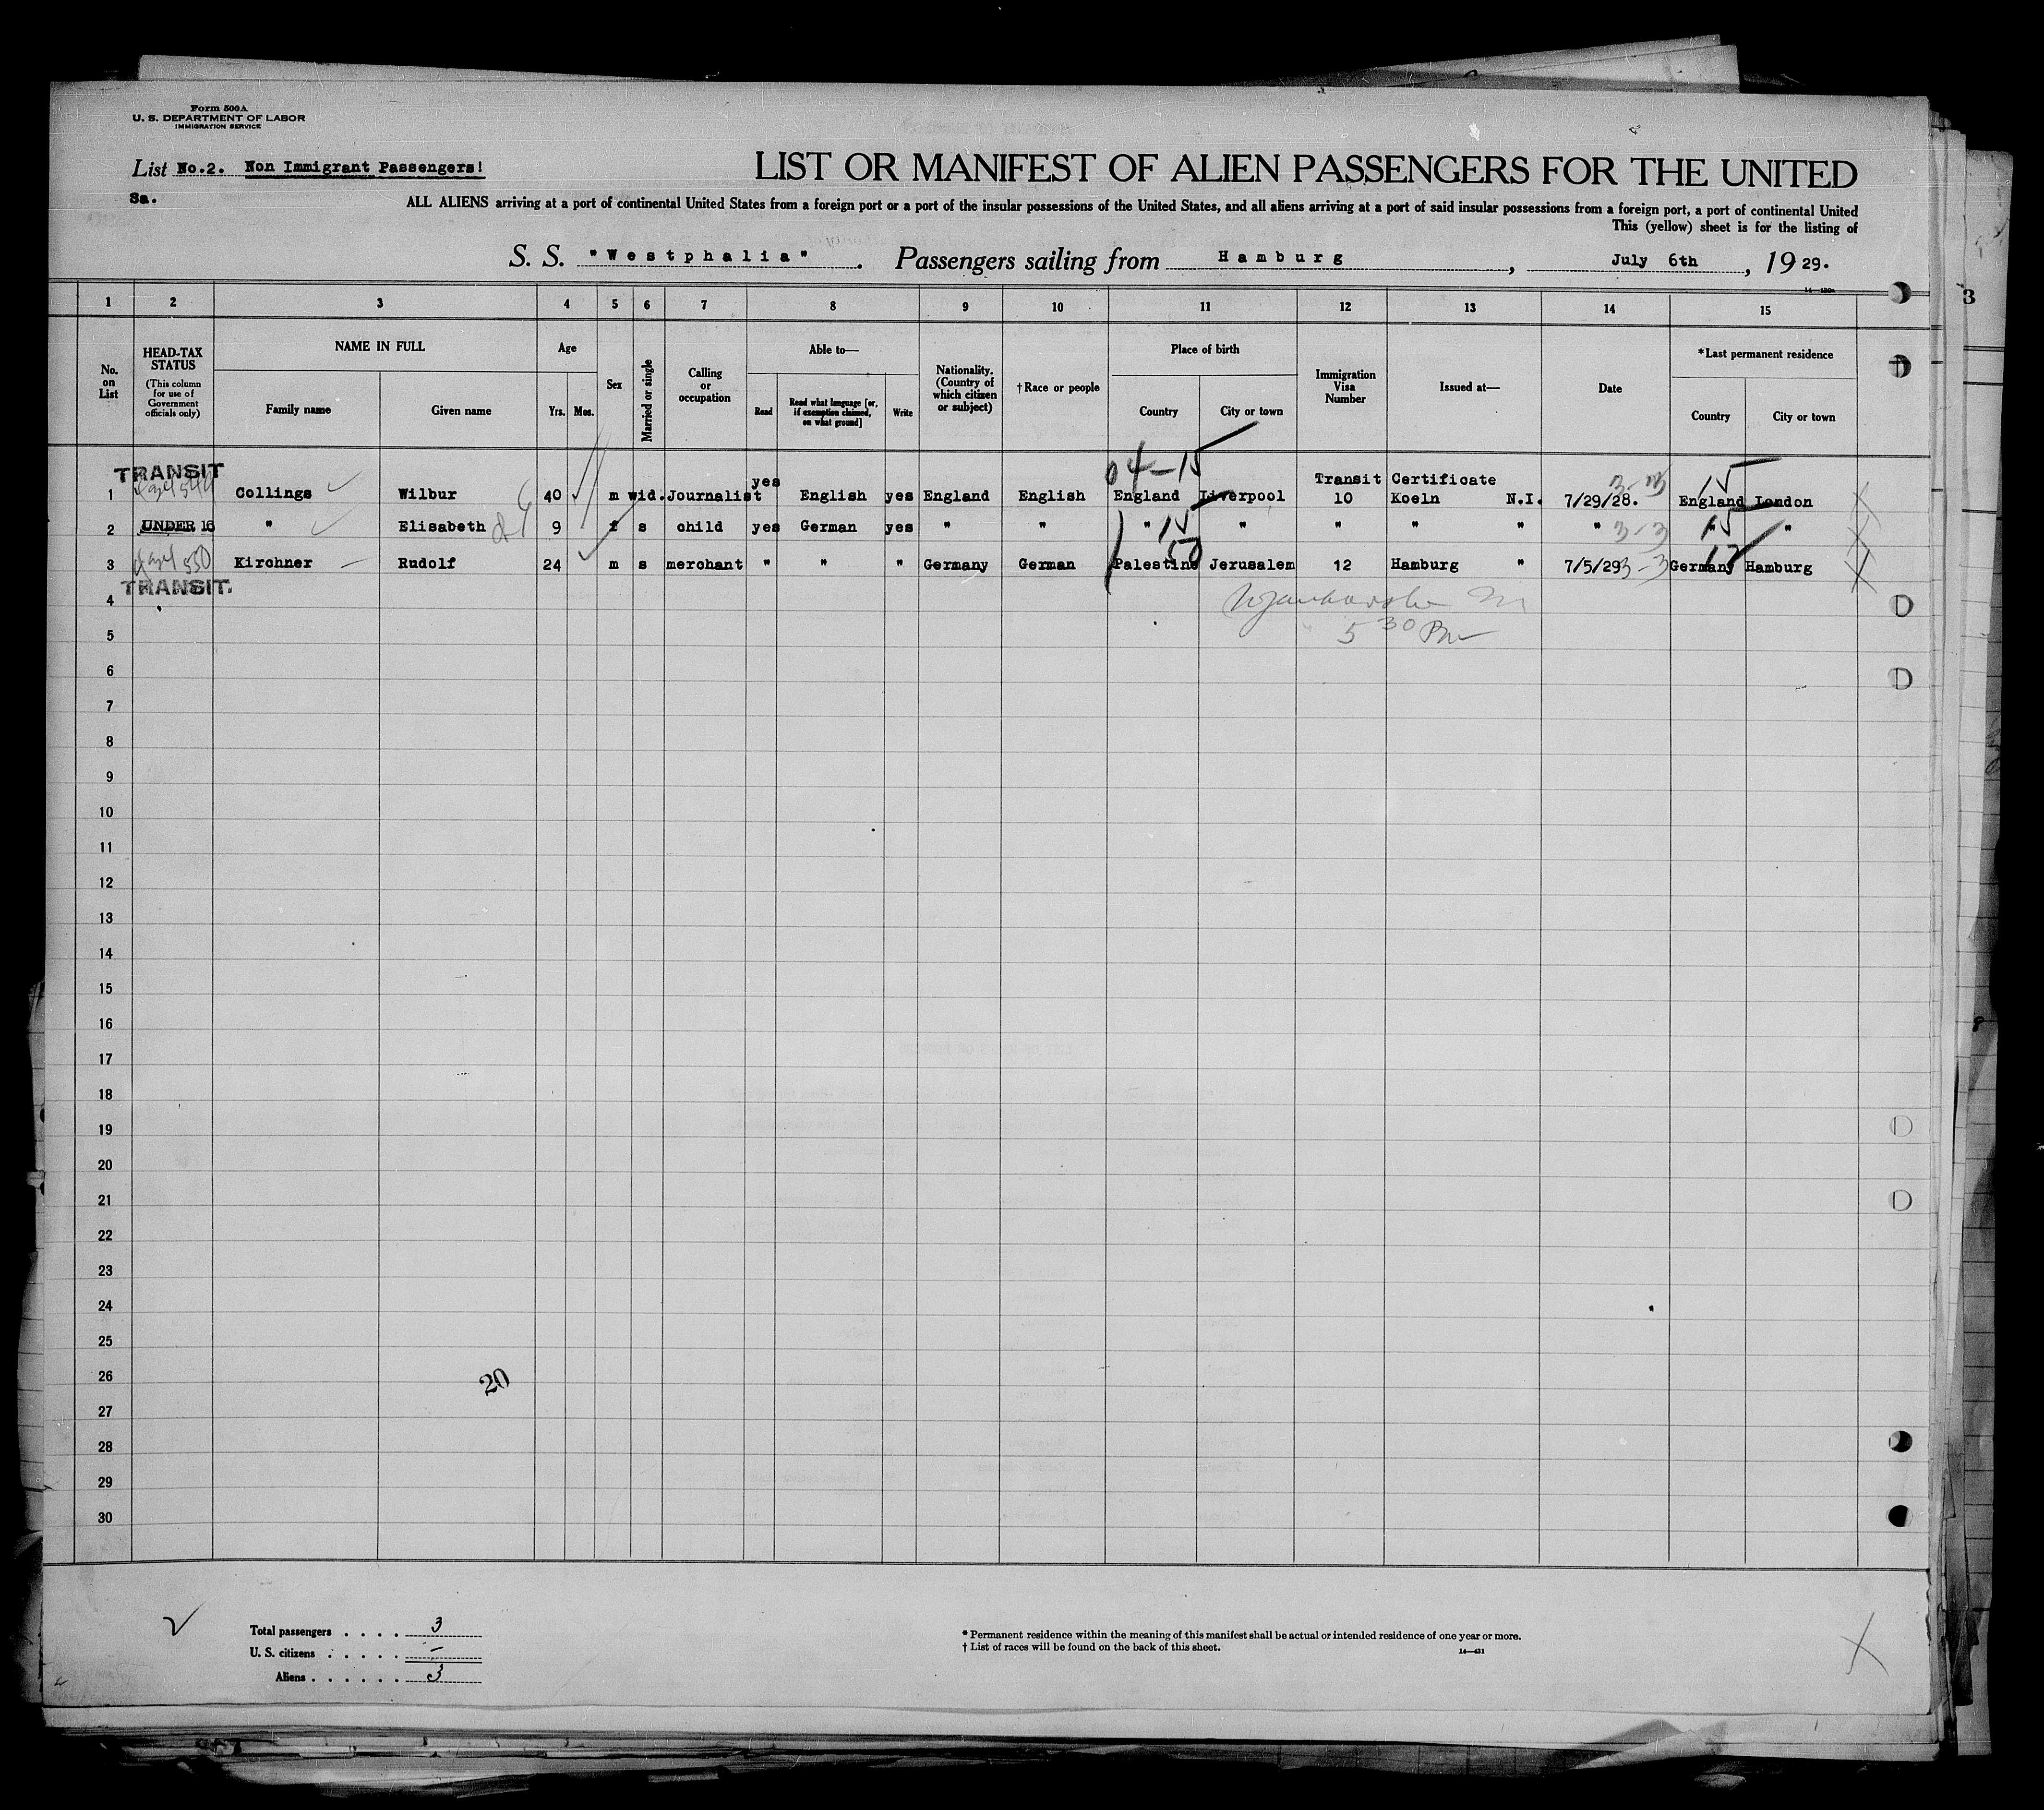 Form 500A
U. S. DEPARTMENT OF LABOR
IMMIGRATION SERVICE
List No.2. Non Immigrant Passengers!
Sa.
LIST OR MANIFEST OF ALIEN PASSENGERS FOR THE UNITED
ALL ALIENS arriving at a port of continental United States from a foreign port or a port of the insular possessions of the United States, and all aliens arriving at a port of said insular possessions from a foreign port, a port of continental United
This (yellow) sheet is for the listing of
S. S. "Westphalia". Passengers sailing from Hamburg, July 6th, 1929.
3
1 2 3 4 5 6 7 8 9 10 11 12 13 14 15
No. on List
HEAD-TAX STATUS (This column for use of Government officials only)
NAME IN FULL
Family name Given name
Age
Yrs. Mos.
Sex
Married or single
Calling or occupation
Able to—
Read Read what language [or, if exemption claimed, on what ground] Write
Nationality. (Country of which citizen or subject)
†Race or people
Place of birth
Country City or town
Immigration Visa Number
Issued at—
Date
*Last permanent residence
Country City or town
04-15
TRANSIT Transit Certificate 15
1 Collings Wilbur 40 m wid. Journalist yes English yes England English England Liverpool 10 Koeln N.I. 7/29/28. England London
2 UNDER 16 " Elisabeth 9 f s child yes German yes " " " 15 " " " " " 3-3 15 " "
3 550 Kirchner Rudolf 24 m s merchant " " " Germany German Palestine 50 Jerusalem 12 Hamburg " 7/5/29 3-3 Germany Hamburg
TRANSIT.
4
5 5 30 PM
6
7
8
9
10
11
12
13
14
15
16
17
18
19
20
21
22
23
24
25
26 20
27
28
29
30
Total passengers . . . . 3
U. S. citizens . . . . . –
Aliens . . . . . . 3
* Permanent residence within the meaning of this manifest shall be actual or intended residence of one year or more.
† List of races will be found on the back of this sheet.
14—431